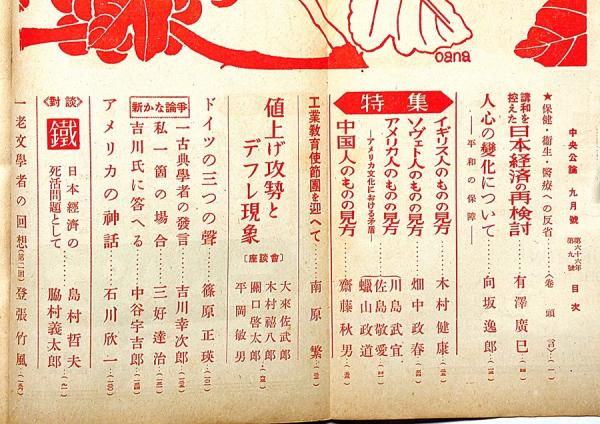 oana
中央公論 九月號 第六十六年 第九號 目次
★保健・衞生・醫療への反省……〈卷頭言〉…(一)
講和を控えた日本経済の再檢討……有澤廣巳…(四)
人心の變化について……向坂逸郎
―平和の保障―
特集
イギリス人のものの見方……木村健康
ソヴェト人のものの見方……畑中政春
アメリカ人のものの見方……川島武宜 佐島敬愛 蠟山政道
―アメリカ文化における矛盾―
中国人のものの見方……齋藤秋男
工業敎育使節團を迎へて……南原繁
値上げ攻勢とデフレ現象〔座談會〕
大來佐武郎
木村禧八郎
關口啓太郎
平岡敏男
ドイツの三つの聲……篠原正瑛
新かな論爭
一古典學者の發言……吉川幸次郎
私一箇の場合……三好達治
吉川氏に答へる……中谷宇吉郎
アメリカの神話……石川欣一
《對談》鐵 日本經濟の死活問題として……島村哲夫 脇村義太郎
一老文學者の回想(第二回)…登張竹風